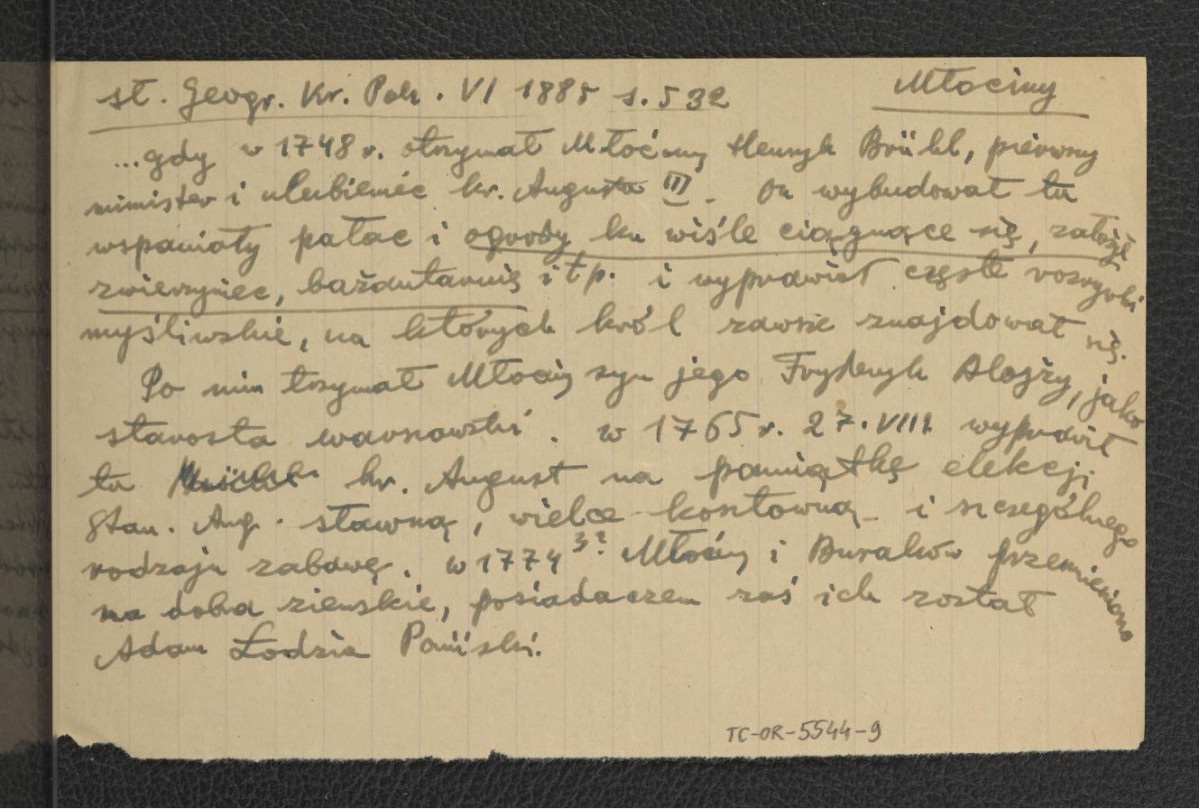 Młociny
st. Geogr. Kr. Pols. VI 1885 s. 532
...gdy w 1748 r. otrzymał Młociny Henryk Brühl, pierwszy
minister i ulubieniec kr. Augusta III. On wybudował tu
wspaniały pałac i ogrody ku wiśle ciągnące się, założył
zwierzyniec, bażantarnię i t p. i wyprawiał częste rozrywki
myśliwskie, na których król zawsze znajdował się.
Po nim trzymał Młociny syn jego Fryderyk Alojzy, jako
starosta warszawski. w 1765 r. 27.VIII wyprawił
tu kr. August na pamiątkę elekcji
Stan. Aug. sławną, wielce kosztowną i szczególnego
rodzaju zabawę. w 1774 3? Młociny i Buraków przemieniono
na dobra ziemskie, posiadaczem zaś ich został
Adam Łodzia Poniński.
TC-OR-5544-9